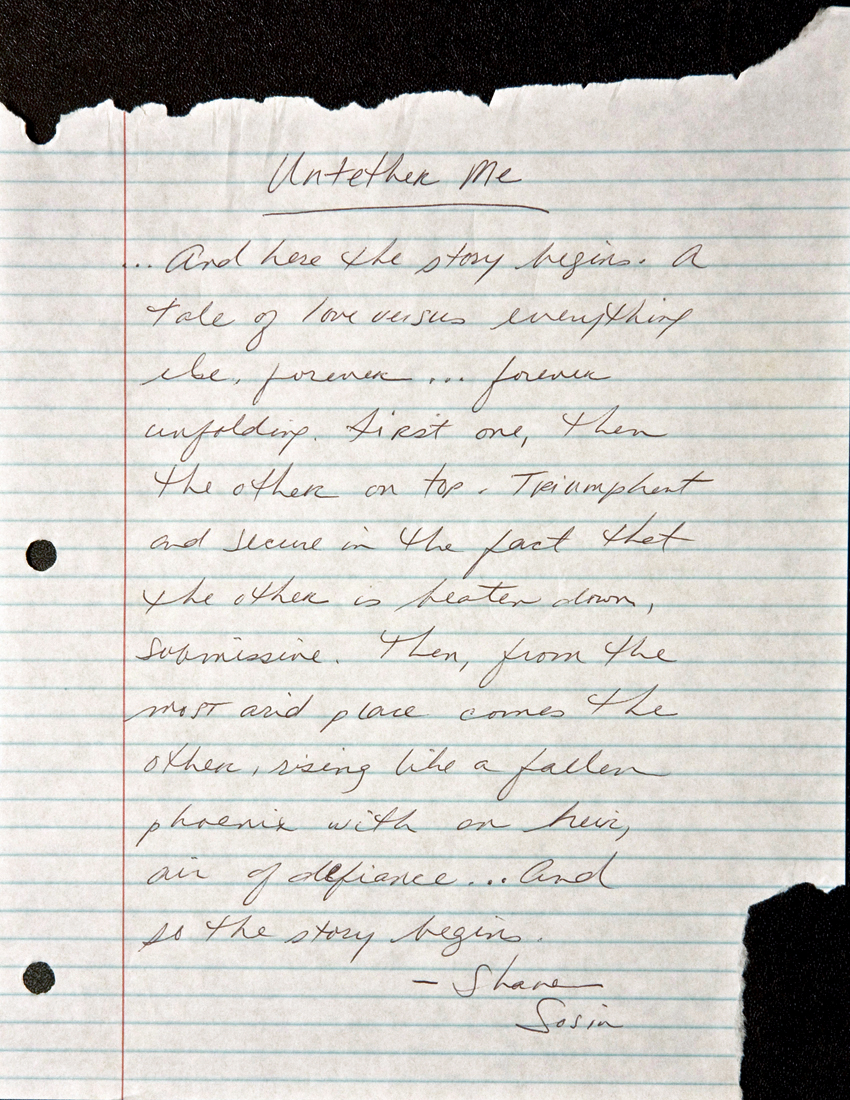 Untether Me
...And here the story begins. A
tale of love versus everything
else, forever... forever
unfolding. First one, then
the other on top. Triumphant
and secure in the fact that
the other is beaten down,
submissive. Then, from the
most arid place comes the
other, rising like a fallen
phoenix with an heir,
air of defiance... And
so the story begins.
- Shane
Sosin